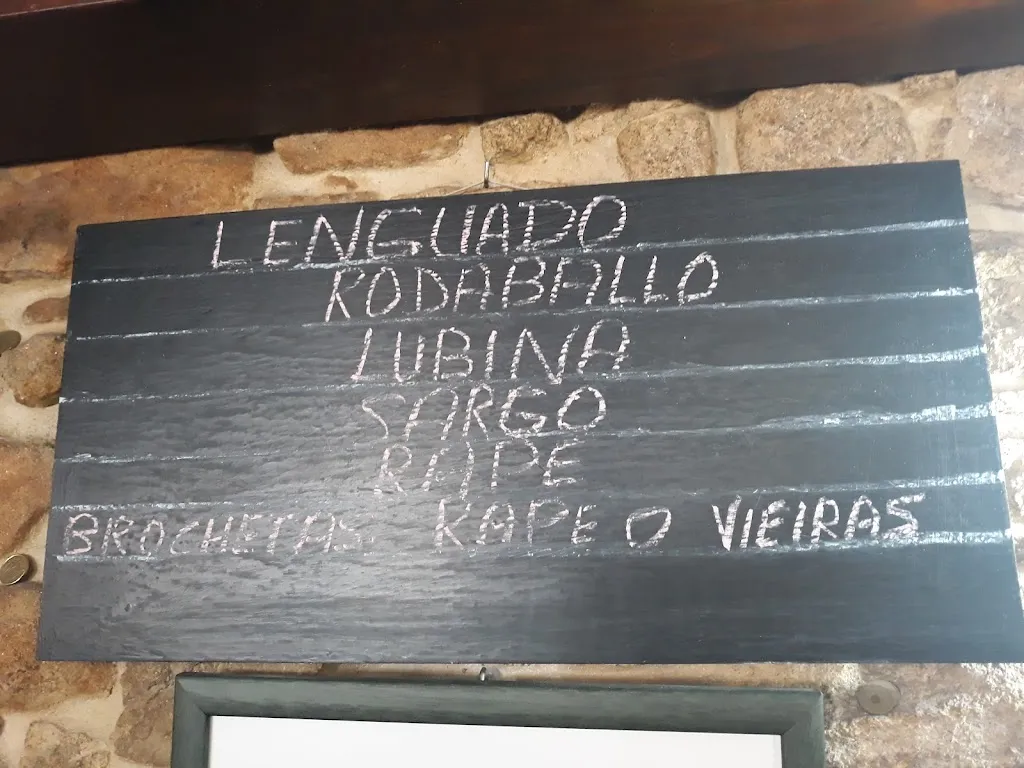 LENGUADO
RODABALLO
LUBINA
SARGO
RAPE
BROCHETAS RAPE O VIEIRAS